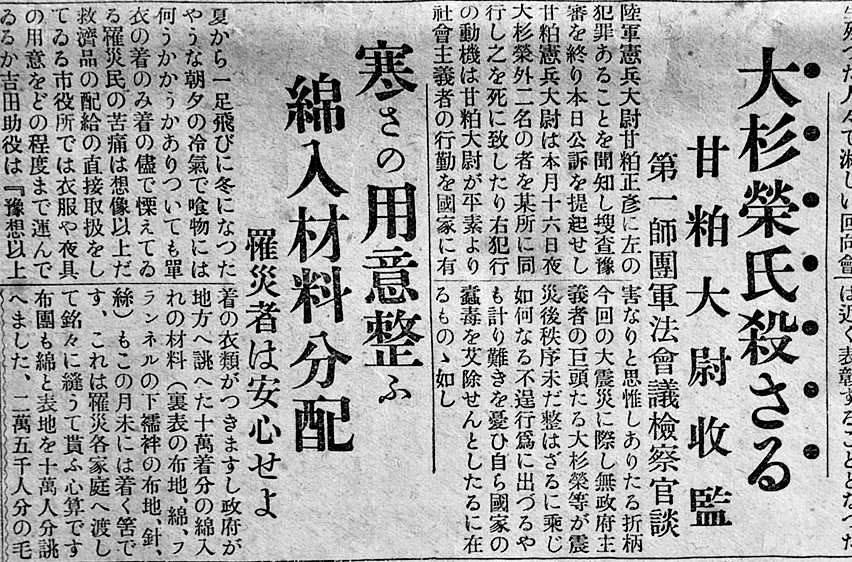 大杉榮氏殺さる
甘粕大尉收監
第一師團軍法會議檢察官談
陸軍憲兵大尉甘粕正彥に左の
犯罪あることを聞知し搜查豫
審を終り本日公訴を提起せし
甘粕憲兵大尉は本月十六日夜
大杉榮外二名の者を某所に同
行し之を死に致したり右犯行
の動機は甘粕大尉が平素より
社會主義者の行動を國家に有
害なりと思惟しありたる折柄
今回の大震災に際し無政府主
義者の巨頭たる大杉榮等が震
災後秩序未だ整はざるに乘じ
如何なる不逞行爲に出づるや
も計り難きを憂ひ自ら國家の
蠹毒を艾除せんとしたるに在
るものゝ如し
寒さの用意整ふ
綿入材料分配
罹災者は安心せよ
夏から一足飛びに冬になつた
やうな朝夕の冷氣で喰物には
何うかかうかありついても單
衣の着のみ着の儘で慄えてゐ
る罹災民の苦痛は想像以上だ
救濟品の配給の直接取扱をし
てゐる市役所では衣服や夜具
の用意をどの程度まで運んで
ゐるか吉田助役は『豫想以上
着の衣類がつきますし政府が
地方へ誂へた十萬着分の綿入
れの材料（裏表の布地、綿、フ
ランネルの下襦袢の布地、針、
絲）もこの月末には着く筈で
す、これは罹災各家庭へ渡し
て銘々に縫うて貰ふ心算です
布團も綿と表地を十萬人分誂
へました、二萬五千人分の毛
は近く表彰することとなつた